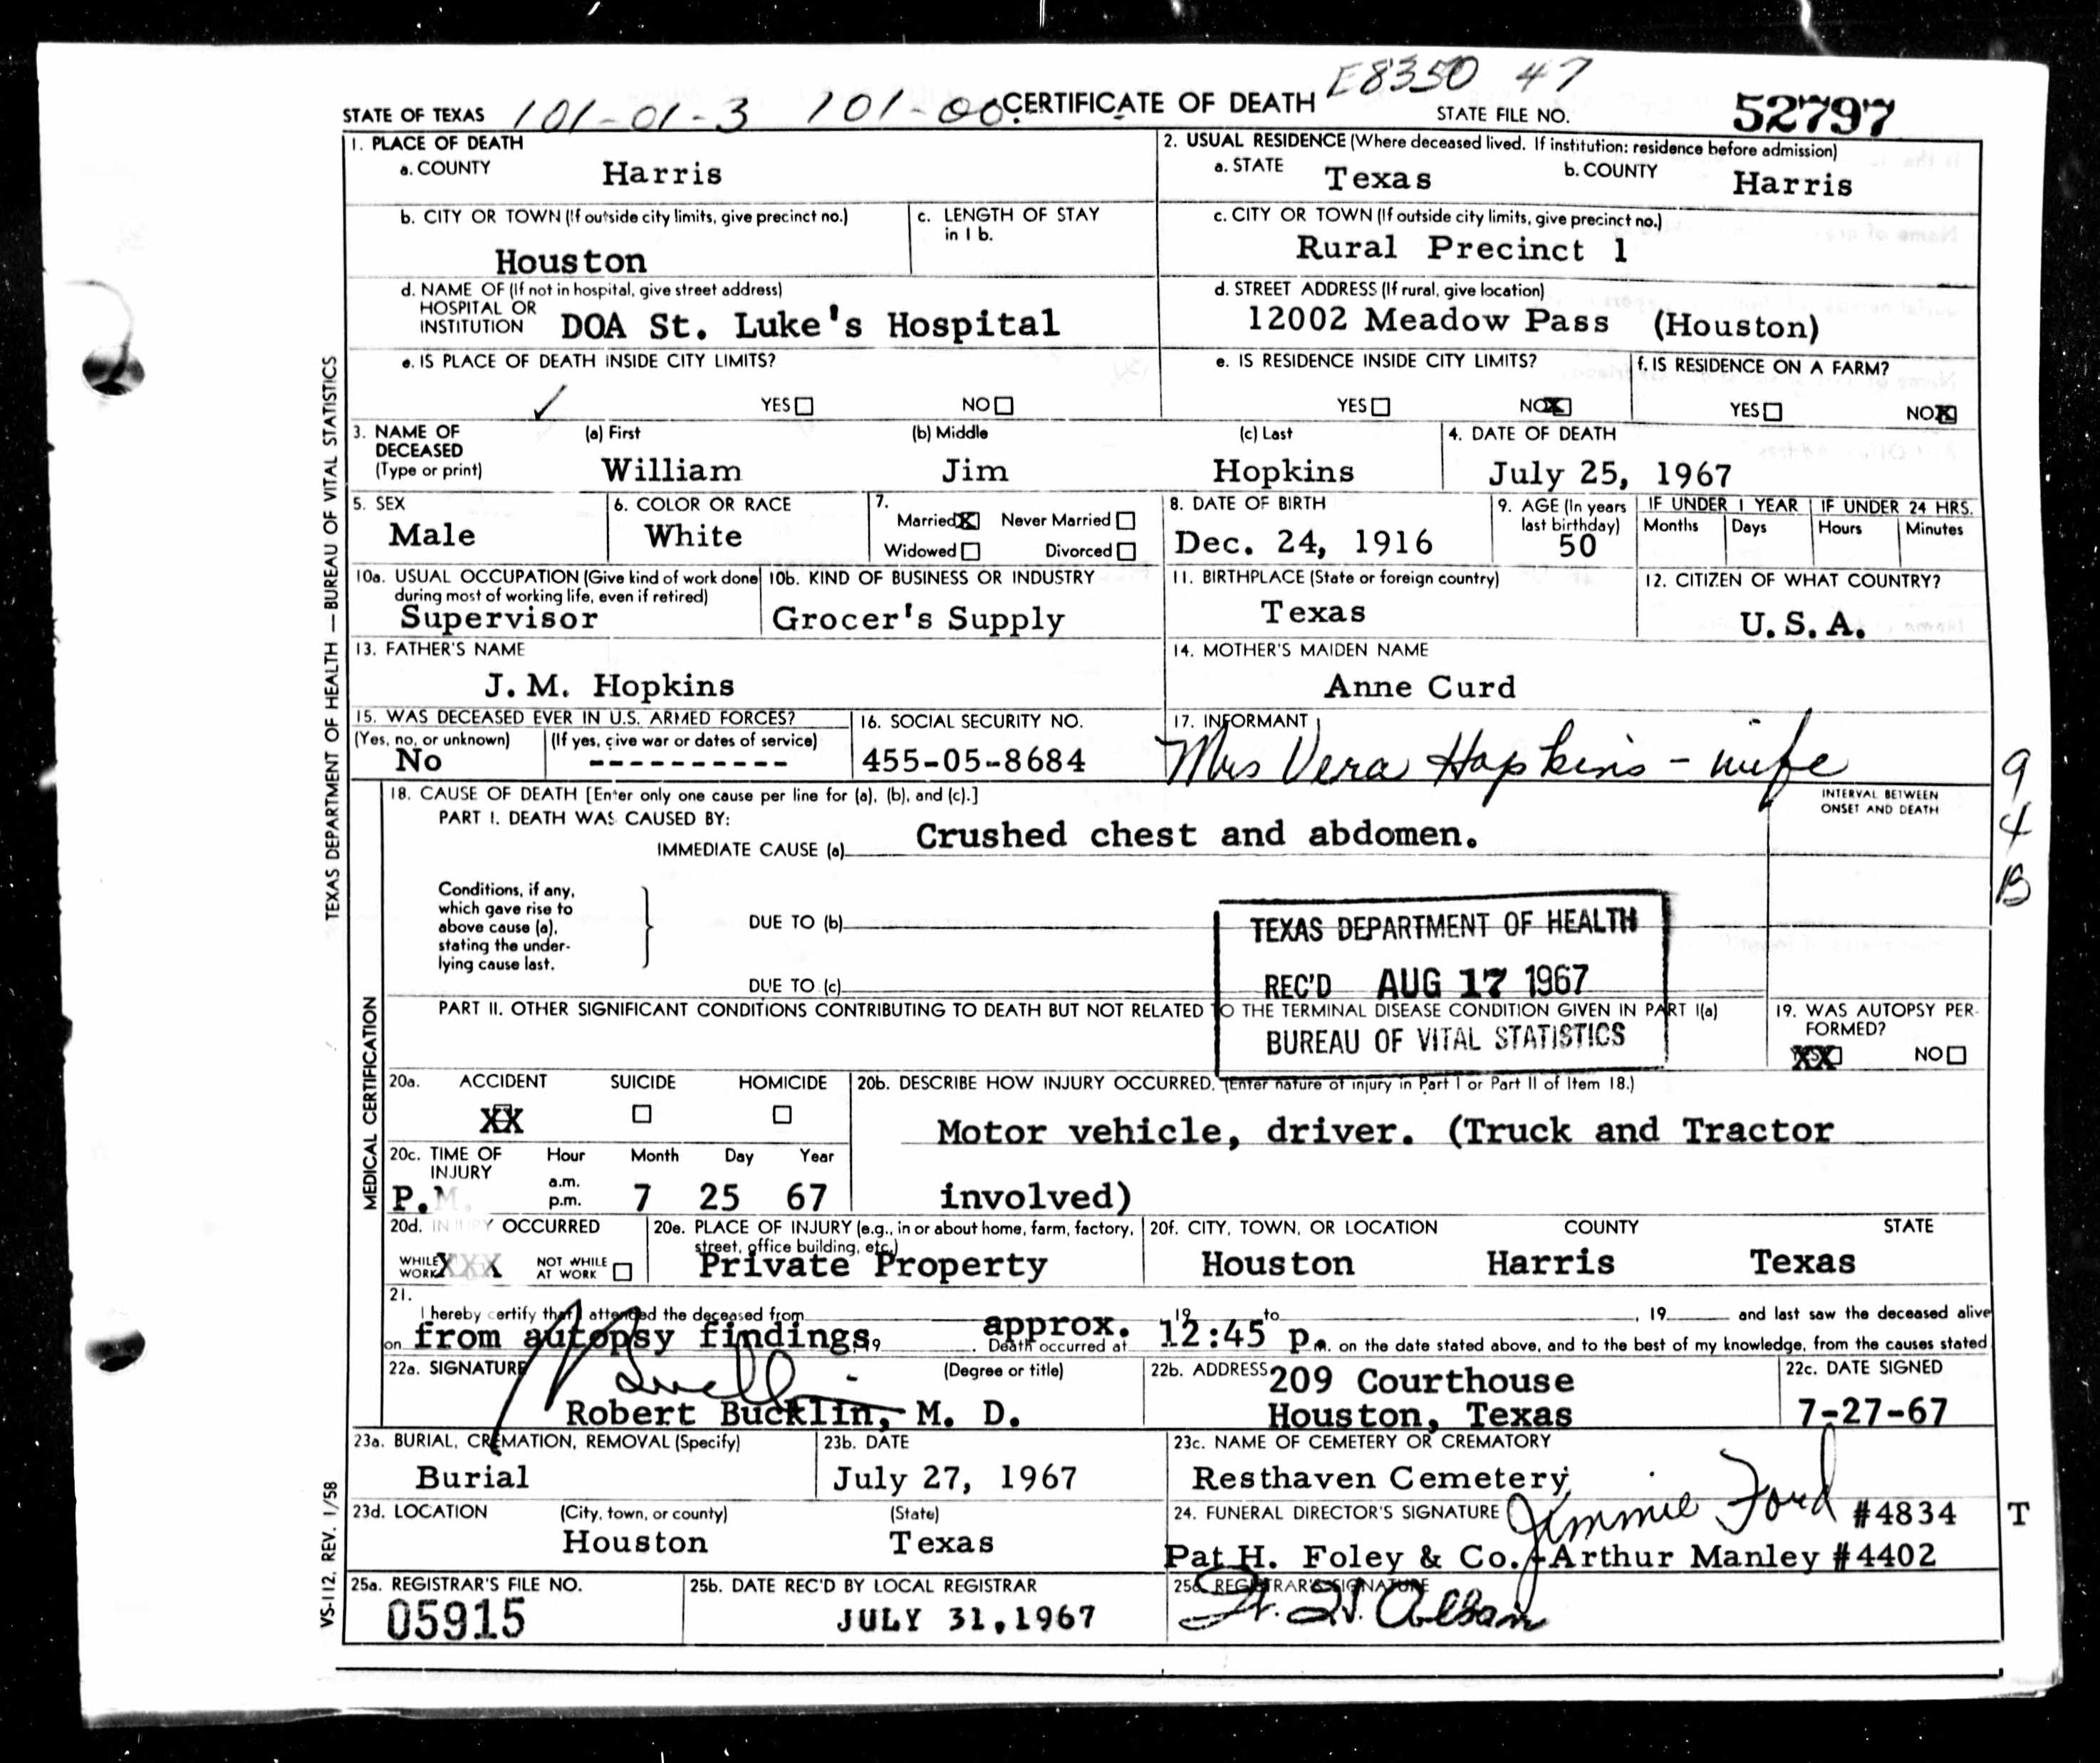 E8350 47
STATE OF TEXAS 101-01-3 101-00 CERTIFICATE OF DEATH STATE FILE NO. 52797
1. PLACE OF DEATH
a. COUNTY Harris
2. USUAL RESIDENCE (Where deceased lived. If institution: residence before admission)
a. STATE Texas b. COUNTY Harris
b. CITY OR TOWN (If outside city limits, give precinct no.)
Houston
c. LENGTH OF STAY
in 1 b.
c. CITY OR TOWN (If outside city limits, give precinct no.)
Rural Precinct 1
d. NAME OF (If not in hospital, give street address)
HOSPITAL OR
INSTITUTION DOA St. Luke's Hospital
d. STREET ADDRESS (If rural, give location)
12002 Meadow Pass (Houston)
e. IS PLACE OF DEATH INSIDE CITY LIMITS?
YES NO
e. IS RESIDENCE INSIDE CITY LIMITS?
YES NO X
f. IS RESIDENCE ON A FARM?
YES NO X
3. NAME OF
DECEASED
(Type or print)
(a) First (b) Middle (c) Last
William Jim Hopkins
4. DATE OF DEATH
July 25, 1967
5. SEX
Male
6. COLOR OR RACE
White
7.
Married X Never Married
Widowed Divorced
8. DATE OF BIRTH
Dec. 24, 1916
9. AGE (In years
last birthday)
50
IF UNDER 1 YEAR IF UNDER 24 HRS.
Months Days Hours Minutes
10a. USUAL OCCUPATION (Give kind of work done
during most of working life, even if retired)
Supervisor
10b. KIND OF BUSINESS OR INDUSTRY
Grocer's Supply
11. BIRTHPLACE (State or foreign country)
Texas
12. CITIZEN OF WHAT COUNTRY?
U.S.A.
13. FATHER'S NAME
J. M. Hopkins
14. MOTHER'S MAIDEN NAME
Anne Curd
15. WAS DECEASED EVER IN U.S. ARMED FORCES?
(Yes, no, or unknown) (If yes, give war or dates of service)
No ----------
16. SOCIAL SECURITY NO.
455-05-8684
17. INFORMANT
Mrs Vera Hopkins - wife
MEDICAL CERTIFICATION
18. CAUSE OF DEATH [Enter only one cause per line for (a), (b), and (c).]
PART I. DEATH WAS CAUSED BY:
IMMEDIATE CAUSE (a) Crushed chest and abdomen.
INTERVAL BETWEEN
ONSET AND DEATH
Conditions, if any,
which gave rise to
above cause (a),
stating the under-
lying cause last.
DUE TO (b)
DUE TO (c)
TEXAS DEPARTMENT OF HEALTH
REC'D AUG 17 1967
BUREAU OF VITAL STATISTICS
PART II. OTHER SIGNIFICANT CONDITIONS CONTRIBUTING TO DEATH BUT NOT RELATED TO THE TERMINAL DISEASE CONDITION GIVEN IN PART I(a)
19. WAS AUTOPSY PER-
FORMED?
YES XX NO
20a. ACCIDENT SUICIDE HOMICIDE
XX
20b. DESCRIBE HOW INJURY OCCURRED. (Enter nature of injury in Part I or Part II of Item 18.)
Motor vehicle, driver. (Truck and Tractor
involved)
20c. TIME OF
INJURY
Hour Month Day Year
a.m.
p.m.
P.M. 7 25 67
20d. INJURY OCCURRED
WHILE
WORK XXX
NOT WHILE
AT WORK
20e. PLACE OF INJURY (e.g., in or about home, farm, factory,
street, office building, etc.)
Private Property
20f. CITY, TOWN, OR LOCATION COUNTY STATE
Houston Harris Texas
21.
I hereby certify that I attended the deceased from 19 to , 19 and last saw the deceased alive
on from autopsy findings 19 . Death occurred at approx. 12:45 p.m. on the date stated above, and to the best of my knowledge, from the causes stated
22a. SIGNATURE (Degree or title)
Robert Bucklin, M. D.
22b. ADDRESS 209 Courthouse
Houston, Texas
22c. DATE SIGNED
7-27-67
23a. BURIAL, CREMATION, REMOVAL (Specify)
Burial
23b. DATE
July 27, 1967
23c. NAME OF CEMETERY OR CREMATORY
Resthaven Cemetery
23d. LOCATION (City, town, or county) (State)
Houston Texas
24. FUNERAL DIRECTOR'S SIGNATURE Jimmie Ford #4834
Pat H. Foley & Co.-Arthur Manley #4402
25a. REGISTRAR'S FILE NO.
05915
25b. DATE REC'D BY LOCAL REGISTRAR
JULY 31, 1967
25c. REGISTRAR'S SIGNATURE
TEXAS DEPARTMENT OF HEALTH — BUREAU OF VITAL STATISTICS
VS-112, REV. 1/58
9
4
B
T